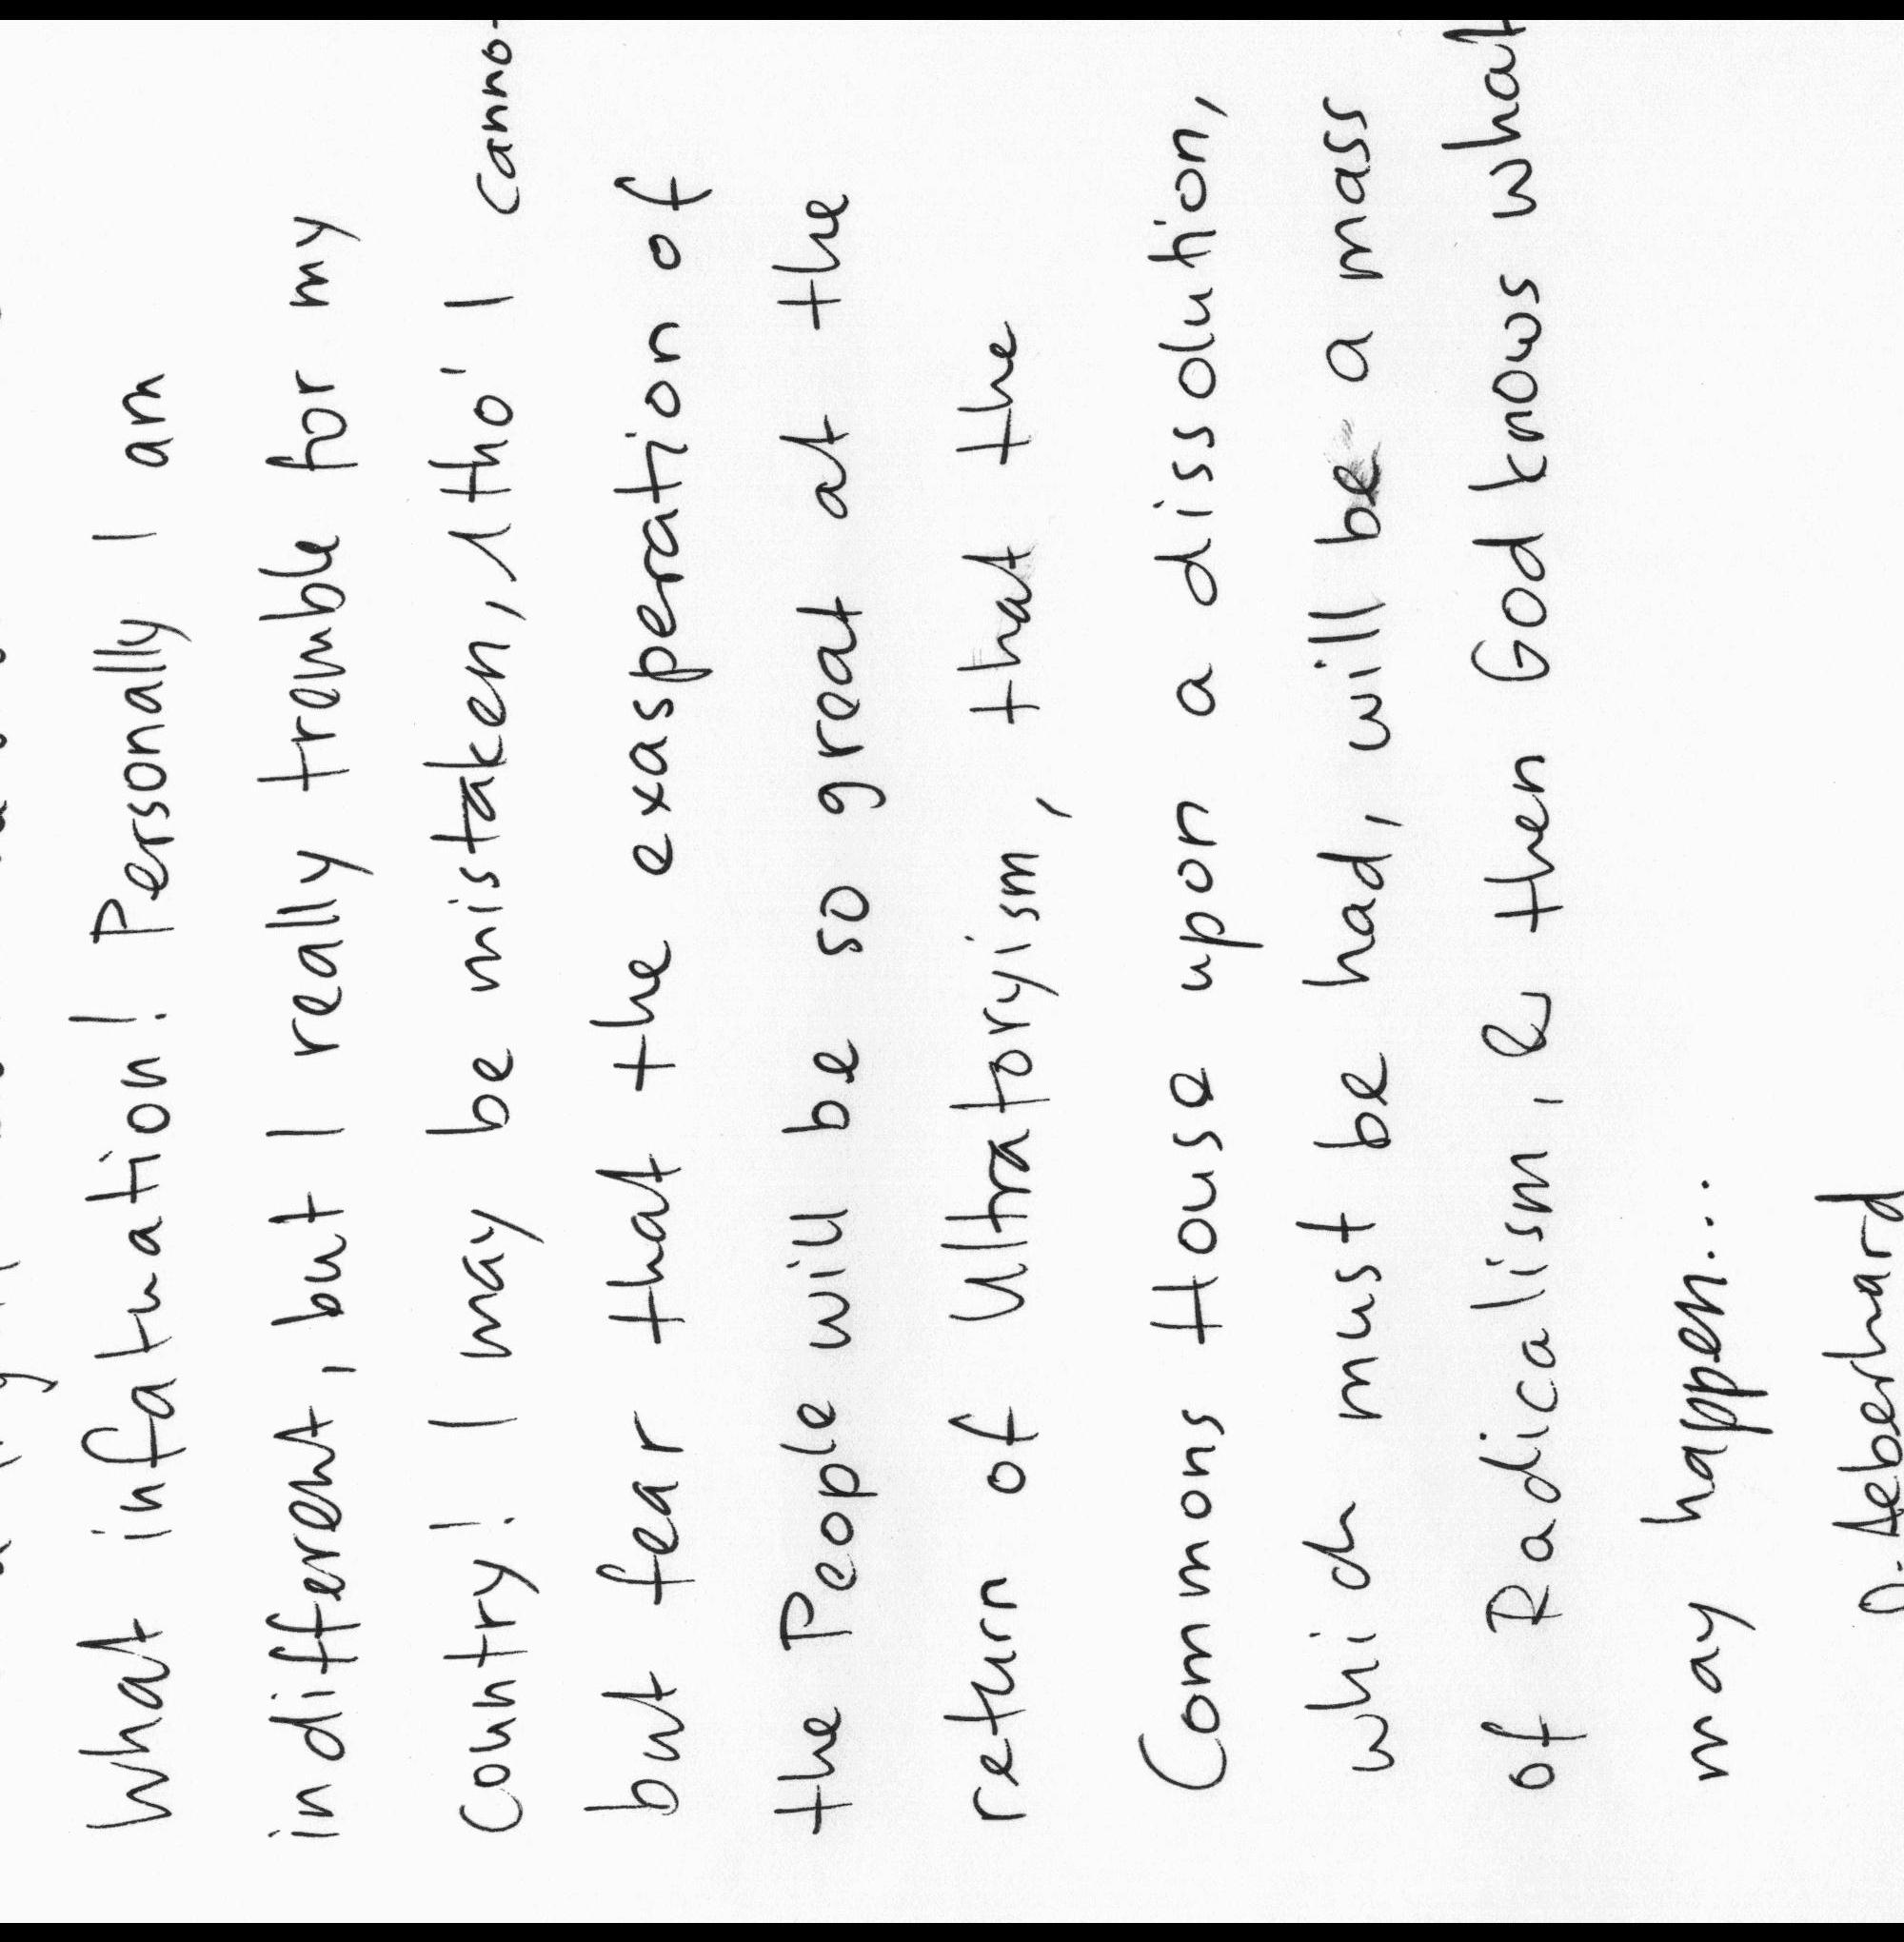 What infatuation! Personally I am
indifferent, but I really tremble for my
country! I may be mistaken, 1tho' I canno
but fear that the exasperation of
the People will be so great at the
return of Ultratoryism, that the
Commons House upon a dissolution,
which must be had, will be a mass
of Radicalism, & then God knows what
may happen...
D. Aeberhard